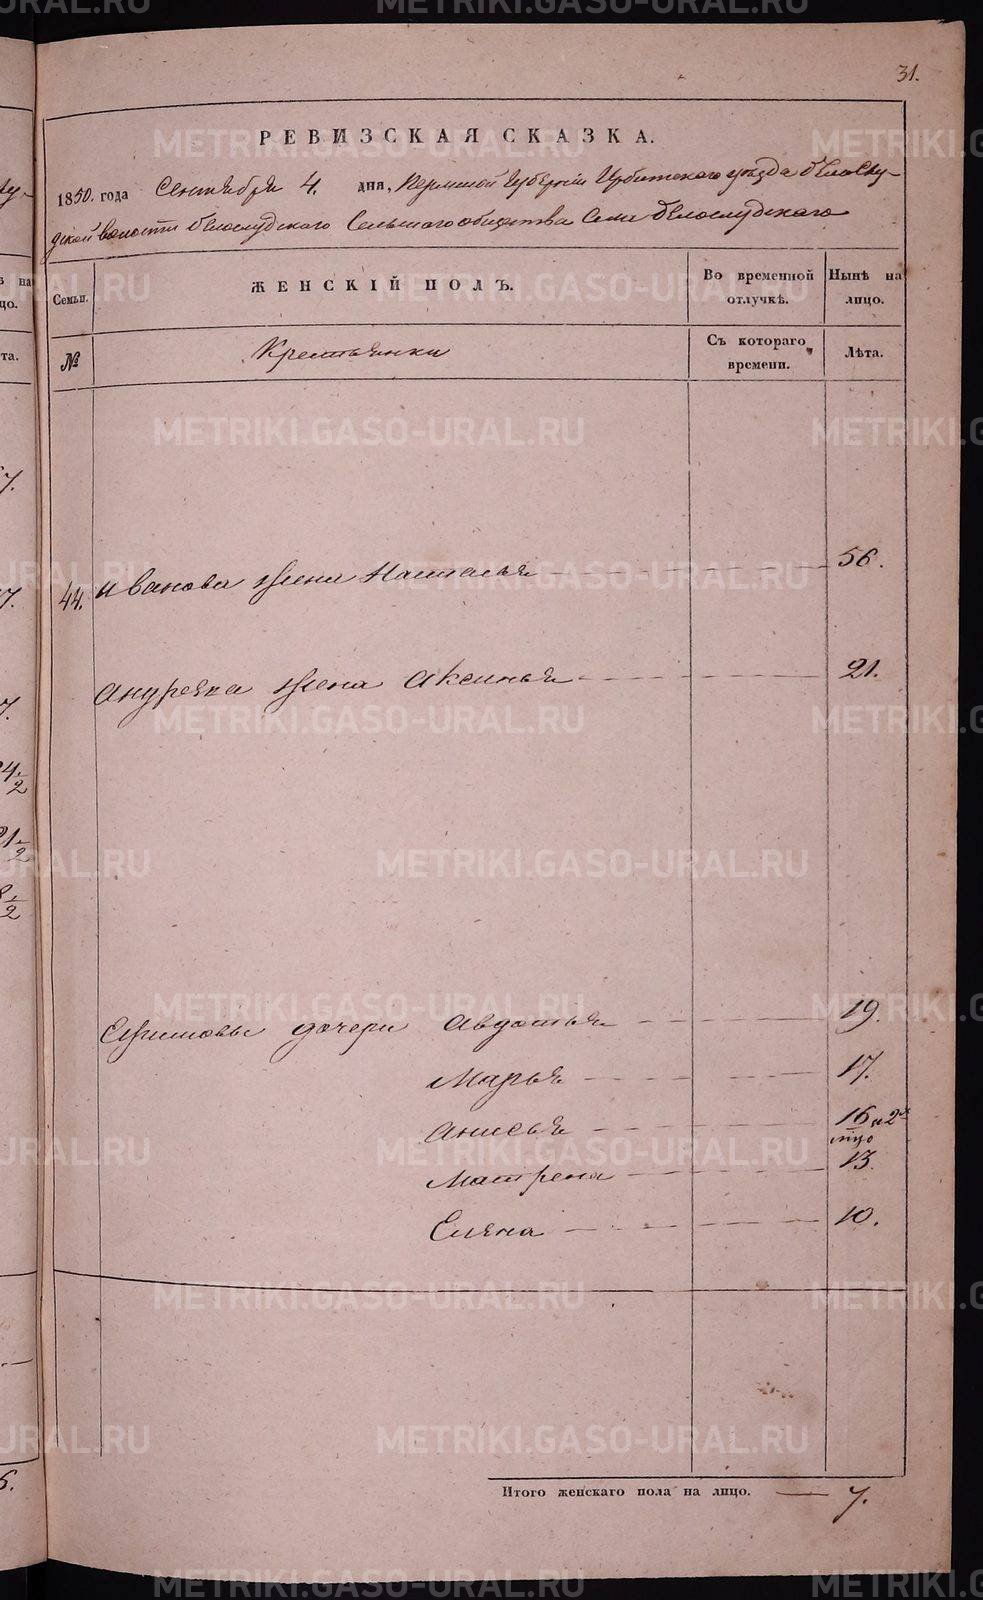 31.
РЕВИЗСКАЯ СКАЗКА.
1850. года Сентября 4. дня, Пермской Губернии Ирбитскаго уезда Белослу-
дской волости Белослудскаго Сельскаго общества Села Белослудскаго
Семьи. ЖЕНСКІЙ ПОЛЪ. Во временной отлучкѣ. Нынѣ на лицо.
№ Крестьянки Съ котораго времени. Лѣта.
44. Иванова жена Наталья 56.
Андреяна жена Аксинья 21.
Ефимовы дочери Авдотья 19.
Марья 17.
Анисья 16 и 2е
лицо
Матрена 13.
Елена 10.
Итого женскаго пола на лицо. 7.
METRIKI.GASO-URAL.RU